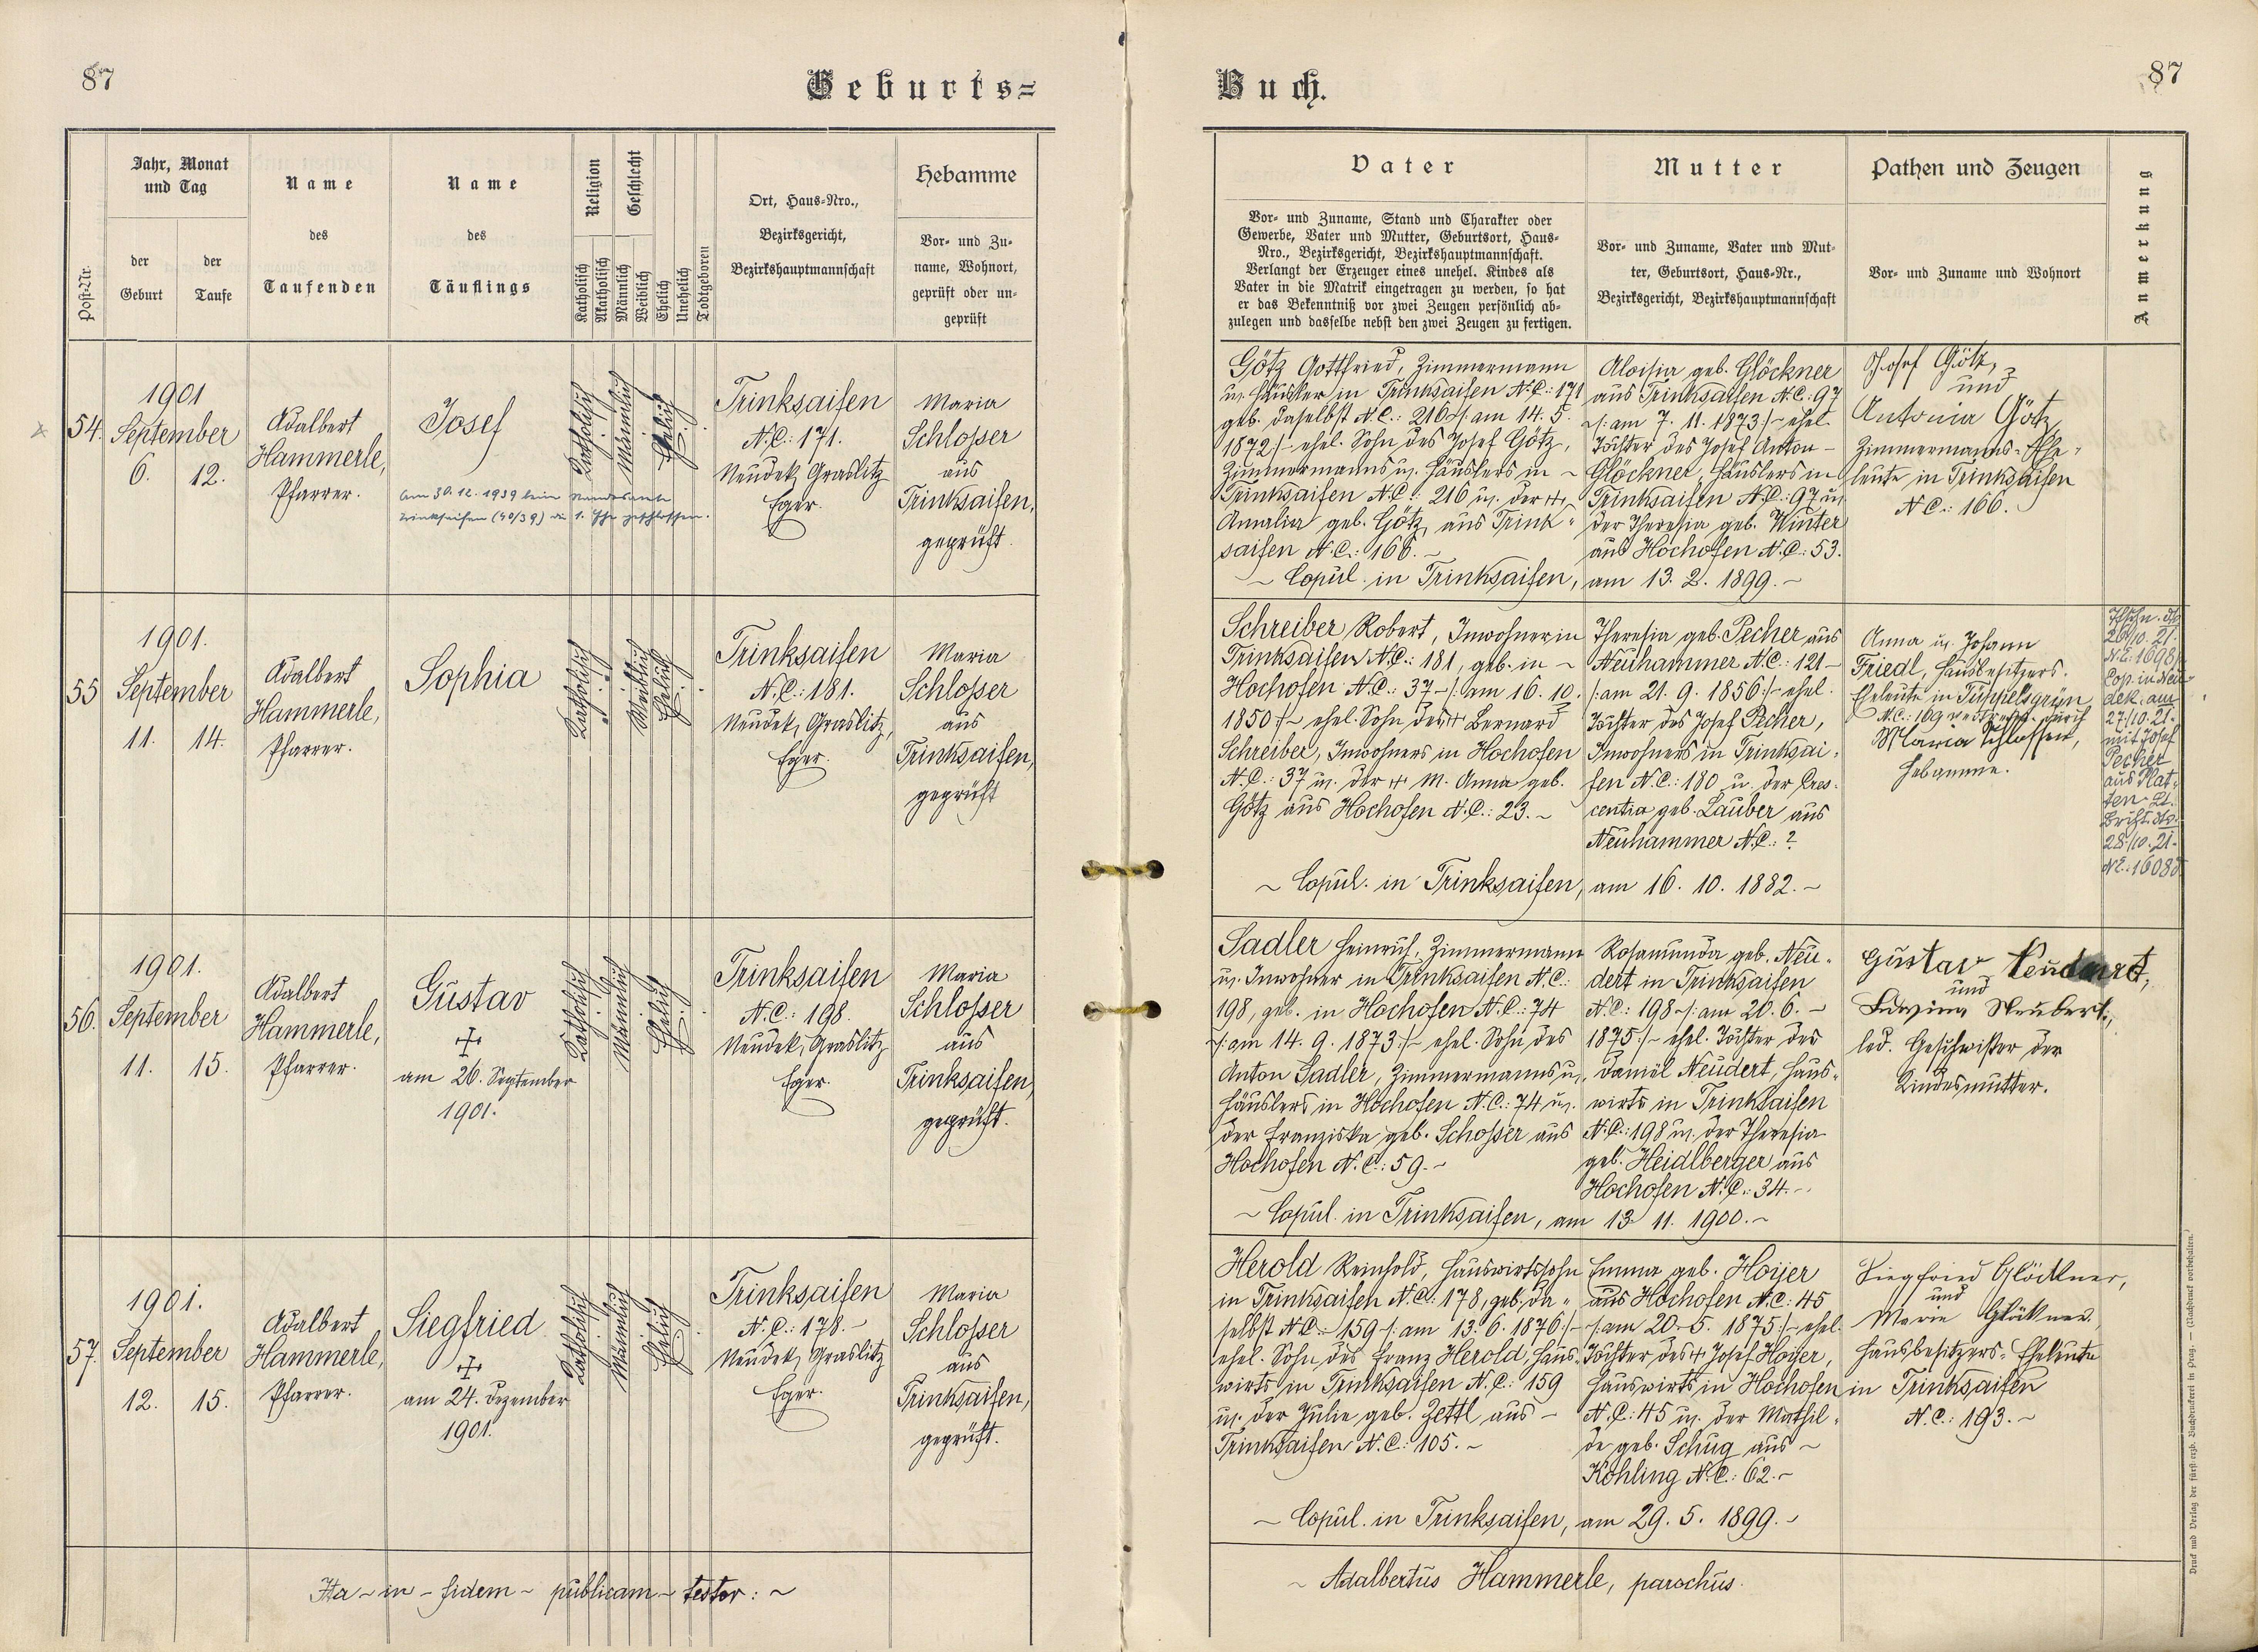 87
Geburts=
Post-Nr.
Jahr, Monat
und Tag
der
Geburt
der
Taufe
Name
des
Taufenden
Name
des
Täuflings
Religion
Katholisch
Akatholisch
Geschlecht
Männlich
Weiblich
Ehelich
Unehelich
Todtgeboren
Ort, Haus-Nro.,
Bezirksgericht,
Bezirkshauptmannschaft
Hebamme
Vor- und Zu-
name, Wohnort,
geprüft oder un-
geprüft
54.
1901
September
6. 12.
Adalbert
Hammerle,
Pfarrer.
Josef
am 30.12.1939 beim Standesamte
Trinksaifen (40/39) die 1. Ehe geschlossen.
Katholisch
Männlich
Ehelich
Trinksaifen
N.C.: 171.
Neudek, Graslitz
Eger.
Maria
Schlosser
aus
Trinksaifen,
geprüft.
55
1901.
September
11. 14.
Adalbert
Hammerle,
Pfarrer.
Sophia
Katholisch
Weiblich
Ehelich
Trinksaifen
N.C.: 181.
Neudek, Graslitz,
Eger.
Maria
Schlosser
aus
Trinksaifen,
geprüft
56.
1901.
September
11. 15.
Adalbert
Hammerle,
Pfarrer.
Gustav
am 26. September
1901.
Katholisch
Männlich
Ehelich
Trinksaifen
N.C.: 198.
Neudek, Graslitz
Eger.
Maria
Schlosser
aus
Trinksaifen,
geprüft.
57.
1901.
September
12. 15.
Adalbert
Hammerle,
Pfarrer.
Siegfried
am 24. Dezember
1901.
Katholisch
Männlich
Ehelich
Trinksaifen
N.C.: 178.-
Neudek, Graslitz
Eger.
Maria
Schlosser
aus
Trinksaifen,
geprüft.
Ita - in - fidem - publicam - testor: ~
Buch.
87
Vater
Vor- und Zuname, Stand und Charakter oder
Gewerbe, Vater und Mutter, Geburtsort, Haus-
Nro., Bezirksgericht, Bezirkshauptmannschaft.
Verlangt der Erzeuger eines unehel. Kindes als
Vater in die Matrik eingetragen zu werden, so hat
er das Bekenntniß vor zwei Zeugen persönlich ab-
zulegen und dasselbe nebst den zwei Zeugen zu fertigen.
Mutter
Vor- und Zuname, Vater und Mut-
ter, Geburtsort, Haus-Nr.,
Bezirksgericht, Bezirkshauptmannschaft
Pathen und Zeugen
Vor- und Zuname und Wohnort
Anmerkung
Götz Gottfried, Zimmermann
u. Häusler in Trinksaifen N.C.: 171
geb. daselbst N.C.: 216 /: am 14. 5.
1872 :/ ehel. Sohn des Josef Götz,
Zimmermanns u. Häuslers in ~
Trinksaifen N.C.: 216 u. der +,
Annalia geb. Götz, aus Trink-
saifen N.C.: 166. ~
~ Copul. in Trinksaifen, am 13. 2. 1899. ~
Aloisia geb. Glöckner
aus Trinksaifen N.C.: 97
/: am 7. 11. 1873 :/ ehel.
Tochter des Josef Anton -
Glöckner, Häuslers in
Trinksaifen N.C.: 97 u.
der Theresia geb. Winter
aus Hochofen N.C.: 53.
Josef Götz,
und
Antonia Götz
Zimmermanns-Ehe-
leute in Trinksaifen
N.C.: 166.
Schreiber Robert, Inwohner in
Trinksaifen N.C.: 181, geb. in ~
Hochofen N.C.: 37 - /: am 16. 10.
1850 :/ ~ ehel. Sohn des + Bernard
Schreiber, Inwohners in Hochofen
N.C.: 37 u. der + M. Anna geb.
Götz aus Hochofen N.C.: 23. ~
~ Copul. in Trinksaifen, am 16. 10. 1882. ~
Theresia geb. Pecher aus
Neuhammer N.C.: 121 -
/: am 21. 9. 1856 :/ ehel.
Tochter des Josef Pecher,
Inwohners in Trinksai-
fen N.C.: 180 u. der Cres-
centia geb. Lauber aus
Neuhammer N.C.: ?
Anna u. Johann
Friedl, Hausbesitzers-
Eheleute in Tüppelsgrün
N.C.: 109 vertreten durch
Maria Schlosser,
Hebamme.
26/10. 21.
Cop. in Neu-
dek am
27/10. 21.
mit Josef
Pecher
aus Plat-
ten Lt.
28/10. 21.
Sadler Heinrich, Zimmermann
u. Inwohner in Trinksaifen N.C.:
198, geb. in Hochofen N.C.: 74
/: am 14. 9. 1873 :/ ~ ehel. Sohn des
Anton Sadler, Zimmermanns u.
Häuslers in Hochofen N.C.: 74 u.
der Franziska geb. Schosser aus
Hochofen N.C.: 59. ~
~ Copul. in Trinksaifen, am 13. 11. 1900. ~
Rosamunda geb. Neu-
dert in Trinksaifen
N.C.: 198 /: am 20. 6. ~
1875 :/ ~ ehel. Tochter des
Daniel Neudert, Haus-
wirts in Trinksaifen
N.C.: 198 u. der Theresia
geb. Heidlberger aus
Hochofen N.C.: 34. ~
Gustav Neudert,
und
Edwina Neubert,
led. Geschwister der
Kindesmutter.
Herold Reinhold, Hauswirtssohn
in Trinksaifen N.C.: 178, geb. da-
selbst N.C.: 159 /: am 13. 6. 1876 :/ ~
ehel. Sohn des Franz Herold, Haus-
wirts in Trinksaifen N.C.: 159
u. der Julie geb. Zettl aus -
Trinksaifen N.C.: 105. ~
~ Copul. in Trinksaifen, am 29. 5. 1899. ~
Emma geb. Hoyer
aus Hochofen N.C.: 45
/: am 20. 5. 1875 :/ ~ ehel.
Tochter des + Josef Hoyer,
Hauswirts in Hochofen
N.C.: 45 u. der Mathil-
de geb. Schug aus ~
Kohling N.C.: 62. ~
Siegfried Glöckner,
und
Marie Glöckner,
Hausbesitzers-Eheleute
in Trinksaifen
N.C.: 193. ~
~ Adalbertus Hammerle, parochus.
Druck und Verlag der fürst-erzb. Buchdruckerei in Prag. — (Nachdruck vorbehalten.)